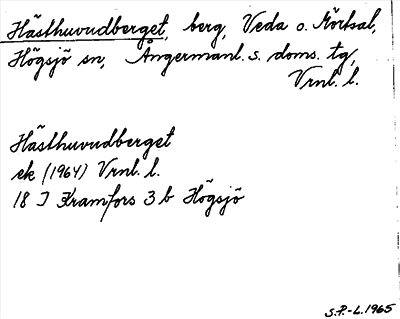 Hästhuvudberget, berg, Veda o. Mörtsal,
Högsjö sn, Ångermanl. s. doms. tg,
Vrnl. l.
Hästhuvudberget
ek (1964) Vrnl. l.
18 I Kramfors 3 b Högsjö
S.P.-L. 1965